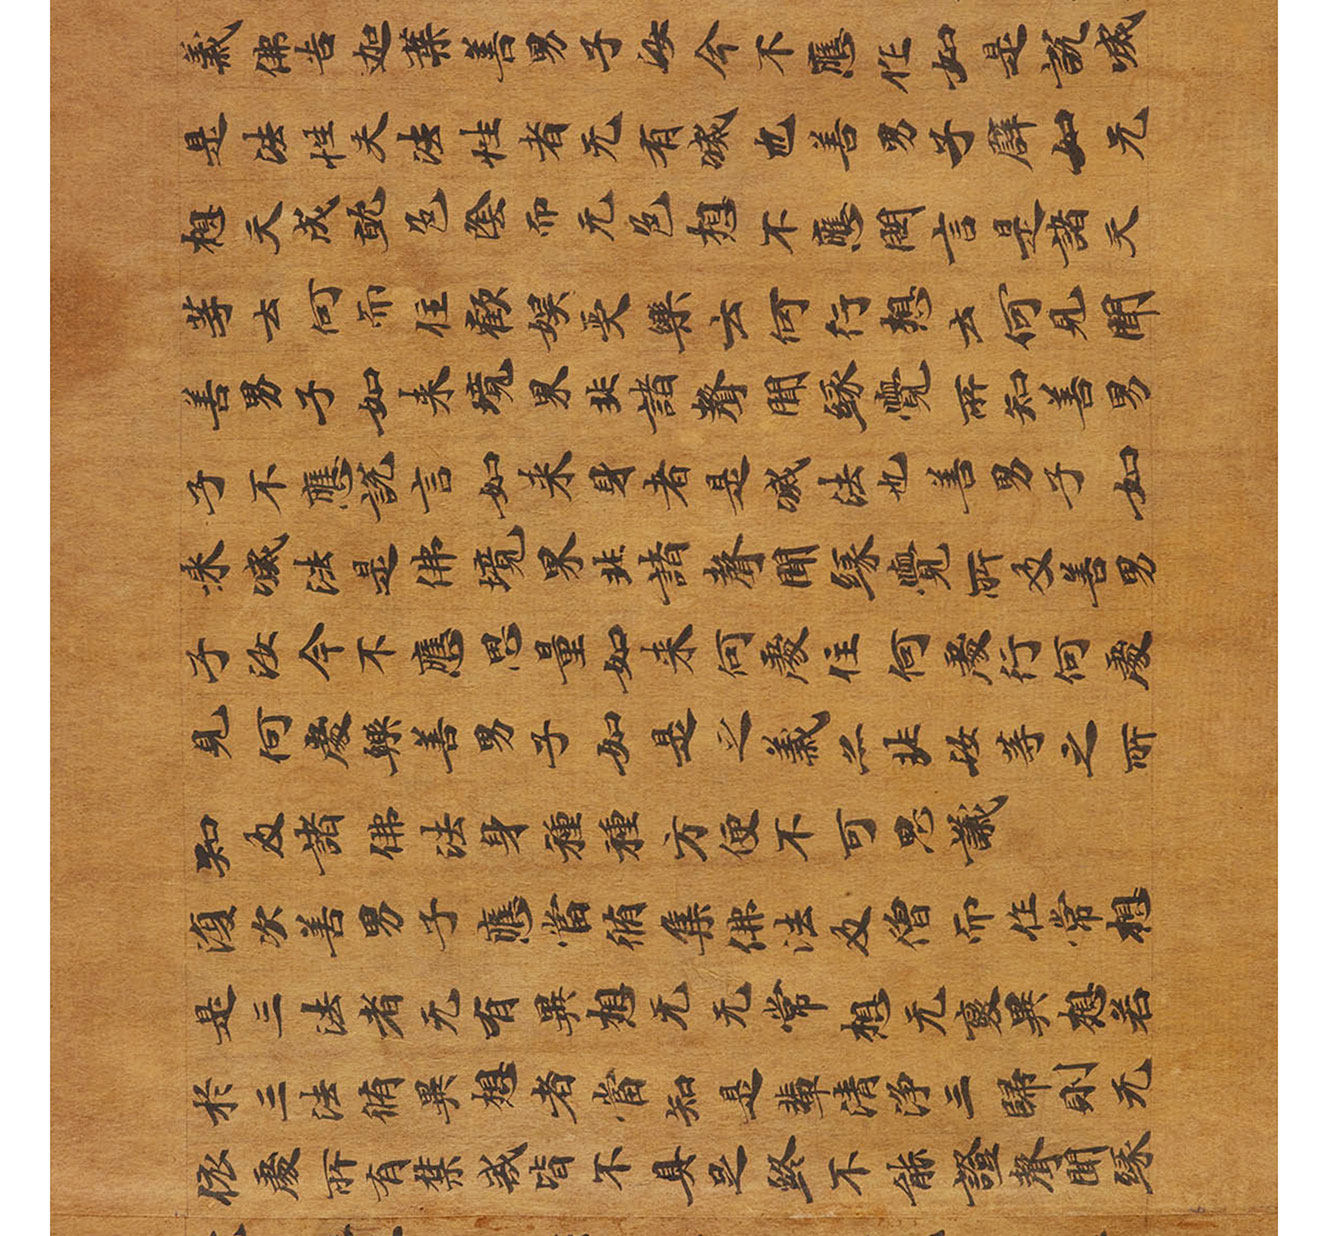 義佛告迦葉善男子汝今不應作如是說滅
是法性夫法性者无有滅也善男子辟如无
想天成就色陰而无色想不應問言是諸天
等云何而住歡娛受樂云何行想云何見聞
善男子如来境界非諸聲聞緣覺所知善男
子不應說言如来身者是滅法也善男子如
来滅法是佛境界非諸聲聞緣覺所及善男
子汝今不應思量如来何處住何處行何處
見何處樂善男子如是之義亦非汝等之所
知及諸佛法身種種方便不可思議
復次善男子應當脩集佛法及僧而作常想
是三法者无有異想无无常想无變異想若
於三法脩異想者當知是輩清淨三歸則无
依處所有禁戒皆不具足終不能證聲聞緣